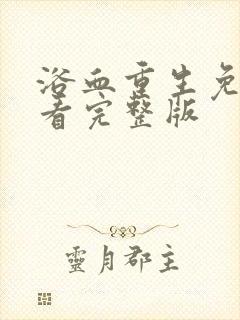 浴血重生免
看完整版
靈月郡主